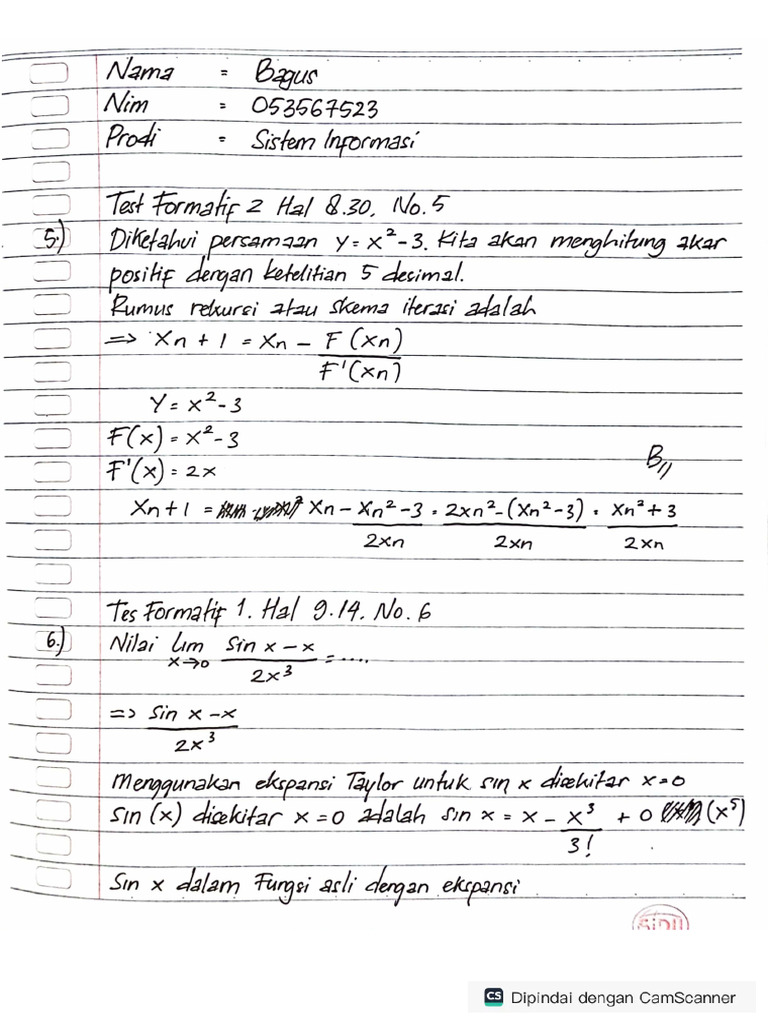 Nama = Bagus
Nim = 053567523
Prodi = Sistem Informasi
Test Formatif 2 Hal 8.30, No.5
5.) Diketahui persamaan y = x² - 3. Kita akan menghitung akar
positif dengan ketelitian 5 desimal.
Rumus rekursi atau skema iterasi adalah
=> Xn + 1 = Xn - F (Xn) / F'(Xn)
Y = x² - 3
F(x) = x² - 3
F'(x) = 2x
B//
Xn + 1 = Xn - Xn² - 3 / 2xn = 2xn² - (Xn² - 3) / 2xn = Xn² + 3 / 2xn
Tes Formatif 1. Hal 9.14. No. 6
6.) Nilai Lim x→0 Sin x - x / 2x³ = ....
=> Sin x - x / 2x³
Menggunakan ekspansi Taylor untuk sin x disekitar x = 0
Sin (x) disekitar x = 0 adalah sin x = x - x³ / 3! + 0 (x⁵)
Sin x dalam Fungsi asli dengan ekspansi
SIDU
CS Dipindai dengan CamScanner